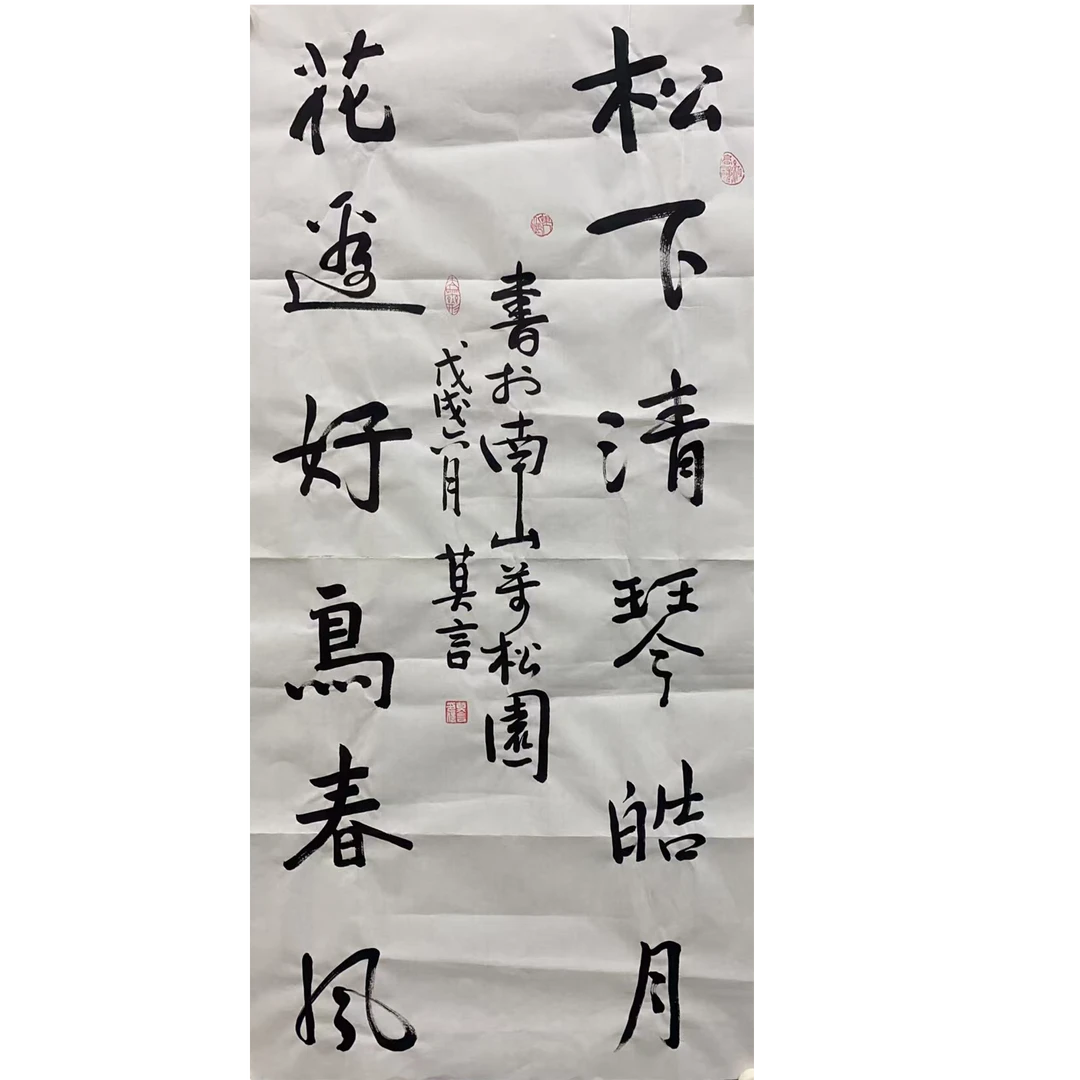 松下清琴皓月
書於南山萬松園
戊戌六月 莫言
花邊好鳥春風